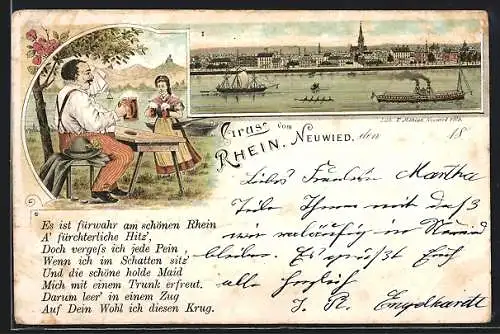 Lith. v.
Gruss vom
RHEIN. NEUWIED, den 18
Liebes Fräulein Martha
Teile Ihnen mit daß
wir vorläufig in Neuwied
bleiben. Es grüßt Euch
alle herzlich
J. R. Engelhardt
Es ist fürwahr am schönen Rhein
A' fürchterliche Hitz',
Doch vergeſs ich jede Pein,
Wenn ich im Schatten sitz'
Und die schöne holde Maid
Mich mit einem Trunk erfreut.
Darum leer' in einem Zug
Auf Dein Wohl ich diesen Krug.